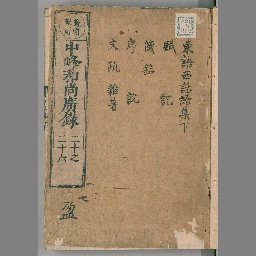 東語西話續集下
賦 記
箴銘
序 説
文 疏 雜著
中峰和尚廣錄
二十之
二十六
七
盈